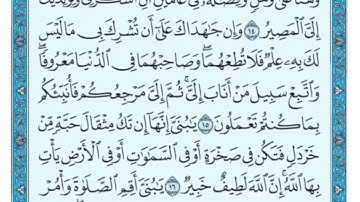 إِلَىَّ ٱلْمَصِيرُ ١٤ وَإِن جَٰهَدَاكَ عَلَىٰٓ أَن تُشْرِكَ بِى مَا لَيْسَ
لَكَ بِهِۦ عِلْمٌ فَلَا تُطِعْهُمَا ۖ وَصَاحِبْهُمَا فِى ٱلدُّنْيَا مَعْرُوفًا ۖ
وَٱتَّبِعْ سَبِيلَ مَنْ أَنَابَ إِلَىَّ ۚ ثُمَّ إِلَىَّ مَرْجِعُكُمْ فَأُنَبِّئُكُم
بِمَا كُنتُمْ تَعْمَلُونَ ١٥ يَٰبُنَىَّ إِنَّهَآ إِن تَكُ مِثْقَالَ حَبَّةٍ مِّنْ
خَرْدَلٍ فَتَكُن فِى صَخْرَةٍ أَوْ فِى ٱلسَّمَٰوَٰتِ أَوْ فِى ٱلْأَرْضِ يَأْتِ
بِهَا ٱللَّهُ ۚ إِنَّ ٱللَّهَ لَطِيفٌ خَبِيرٌ ١٦ يَٰبُنَىَّ أَقِمِ ٱلصَّلَوٰةَ وَأْمُرْ